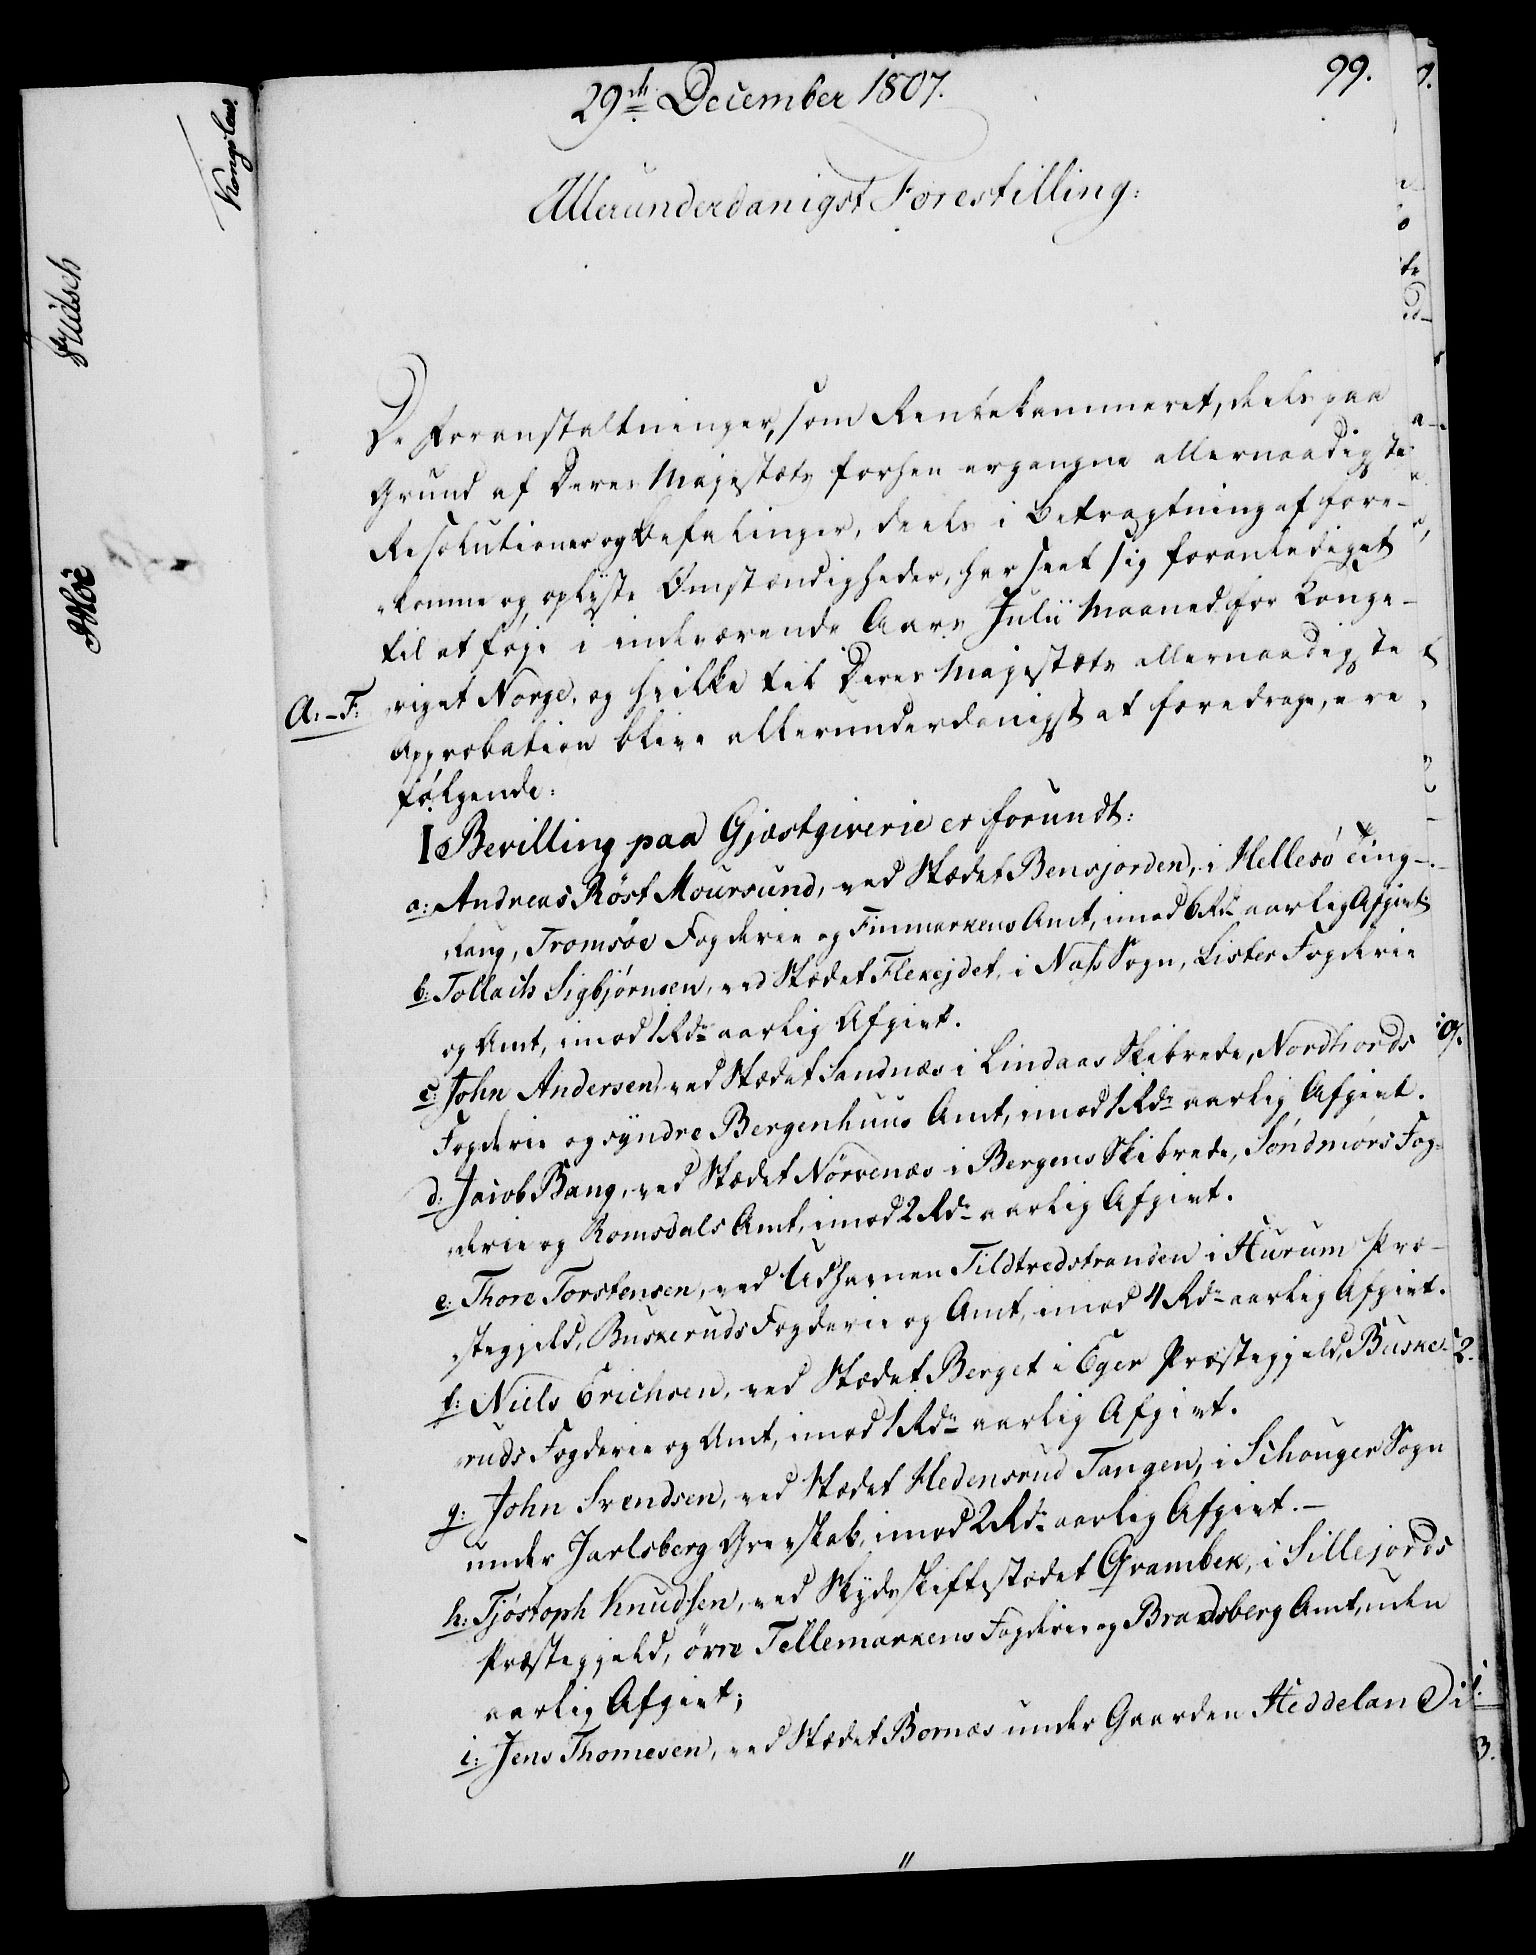 29de December 1807.
99.
Allerunderdanigst Forestilling:
De Foranstaltninger, som Rentekammeret, deels paa
Grund af Deres Majestæts forhen ergangne allernaadigste
Resolutioner og Befalinger, deels i Betragtning af fore-
komne og oplyste Omstændigheder, har seet sig foranlediget
til at føje i indeværende Aars Julii Maaned for Konge-
A:-F: riget Norge, og hvilke til Deres Majestæts allernaadigste
Approbation blive allerunderdanigst at foredrage, ere
følgende:
I Bevilling paa Gjæstgiverie er forundt:
a: Andreas Röst Moursund, ved Stædet Bensjorden, i Hellesö Ting-
laug, Tromsöe Fogderie og Finmarkens Amt, imod 6 Rdr aarlig Afgivt
b: Tollach Sigbjörnsen, ved Stædet Flekejdet, i Nass Sogn, Lister Fogderie
og Amt, imod 1 Rdr aarlig Afgivt.
c: John Andersen, ved Stædet Sandnæs i Lindaas Skibrede, Nordhords
Fogderie og syndre Bergenhuus Amt, imod 1 Rdr aarlig Afgivt.
d: Jacob Bang, ved Stædet Nörvenæs i Bergens Skibrede, Söndmörs Fog-
derie og Romsdals Amt, imod 2 Rdr aarlig Afgivt.
e: Thore Torstensen, ved Udhavnen Tildtredstranden i Hurum Præ-
stegjeld, Buskeruds Fogderie og Amt, imod 4 Rdr aarlig Afgivt.
f: Niels Erichsen, ved Stædet Berget i Eger Præstegjeld, Buske-
ruds Fogderie og Amt, imod 1 Rdr aarlig Afgivt.
g: John Svendsen, ved Stædet Hedensrud Tangen, i Schouger Sogn
under Jarlsberg Grevskab, imod 2 Rdr aarlig Afgivt. –
h: Tjöstoph Knudsen, ved Skydsskiftestædet Qvambek, i Sillejords
Præstegjeld, övre Tellemarkens Fogderie og Bradsberg Amt, uden
aarlig Afgivt;
i: Jens Thomesen, ved Stædet Bornæs under Gaarden Heddeland i